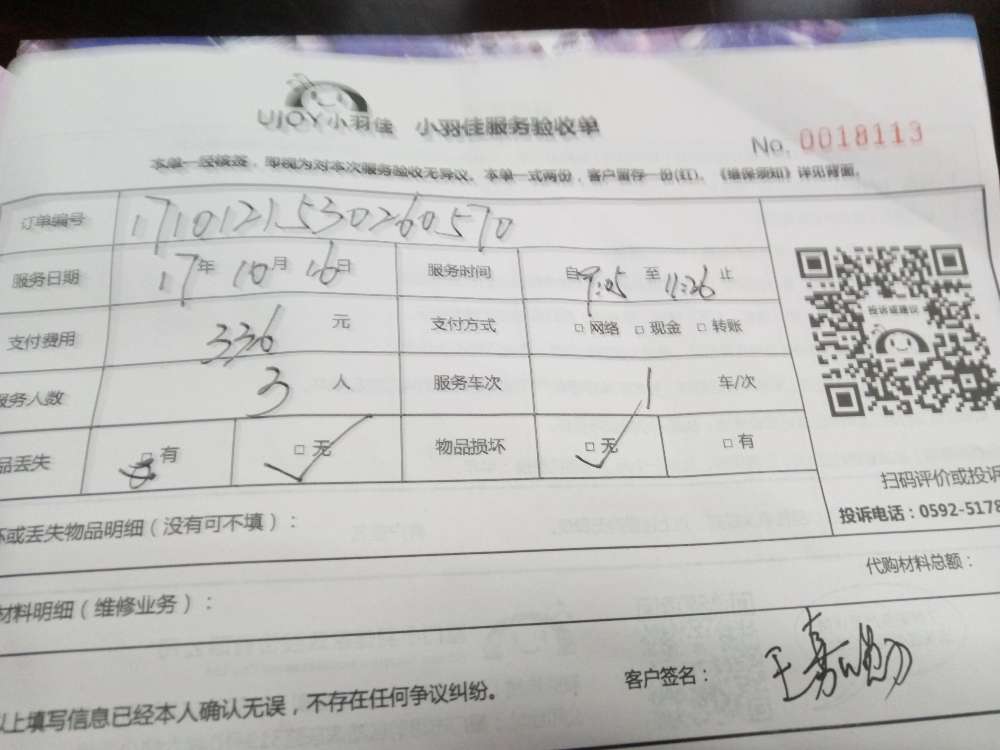 UJOY小羽佳 小羽佳服务验收单
No. 0018113
本单一经核签，即视为对本次服务验收无异议。本单一式两份，客户留存一份(红)。《维保须知》详见背面。
订单编号 1710121530260570
服务日期 17年 10月 16日 服务时间 自9:05 至 11:26 止
支付费用 336 元 支付方式 □ 网络 □ 现金 □ 转账
服务人数 3 人 服务车次 1 车/次
品丢失 □ 有 □ 无 物品损坏 □ 无 □ 有
投诉或建议
扫码评价或投诉
投诉电话：0592-5178
坏或丢失物品明细（没有可不填）：
代购材料总额：
材料明细（维修业务）：
客户签名：
以上填写信息已经本人确认无误，不存在任何争议纠纷。